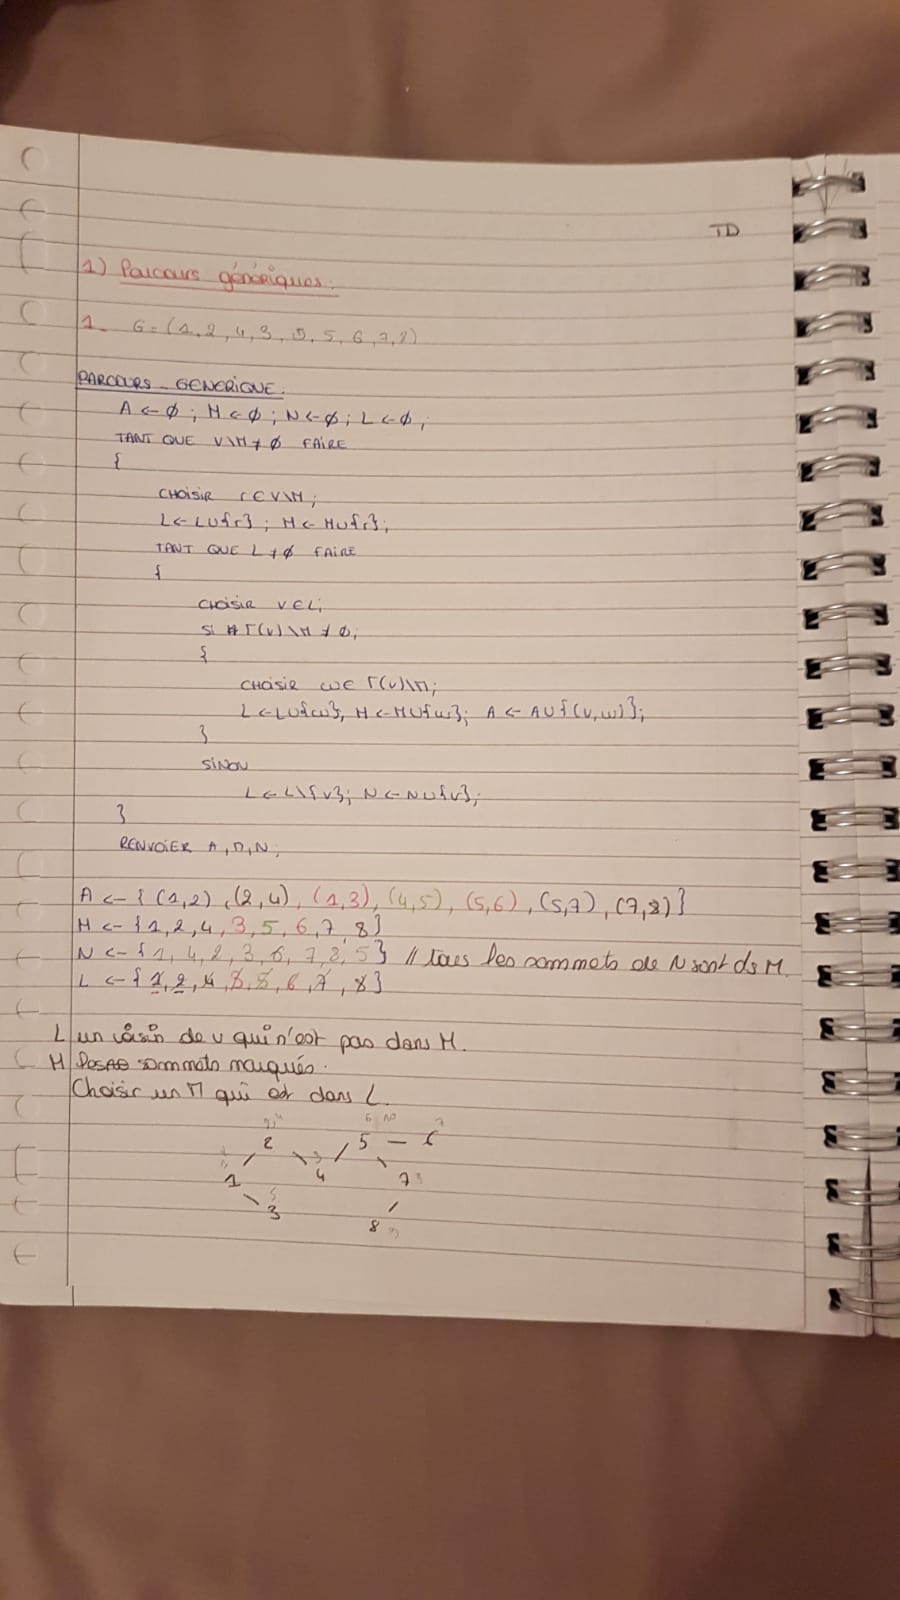 TD
1) Parcours génériques:
1. G = (1, 2, 4, 3, 5, 5, 6, 7, 8)
PARCOURS - GENERIQUE:
A ← ∅ ; M ← ∅ ; N ← ∅ ; L ← ∅ ;
TANT QUE V\M ≠ ∅ FAIRE
{
CHOISIR r ∈ V\M ;
L ← L ∪ {r} ; M ← M ∪ {r} ;
TANT QUE L ≠ ∅ FAIRE
{
CHOISIR v ∈ L ;
SI Γ(v) \ M ≠ ∅ ;
{
CHOISIR w ∈ Γ(v)\M ;
L ← L ∪ {w}, M ← M ∪ {w} ; A ← A ∪ {(v,w)} ;
}
SINON
L ← L\{v} ; N ← N ∪ {v} ;
}
RENVOIER A, M, N ;
A ← { (1,2), (2,4), (1,3), (4,5), (5,6), (5,7), (7,8) }
M ← { 1, 2, 4, 3, 5, 6, 7, 8 }
N ← { 1, 4, 2, 3, 6, 7, 8, 5 } // tous les sommets de N sont ds M.
L ← { 1, 2, 4, 3, 5, 6, 7, 8 }
L un voisin de v qui n'est pas dans M.
M sommets marqués.
Choisir un M qui est dans L.
2 5 — 6
1 4 7
3 8